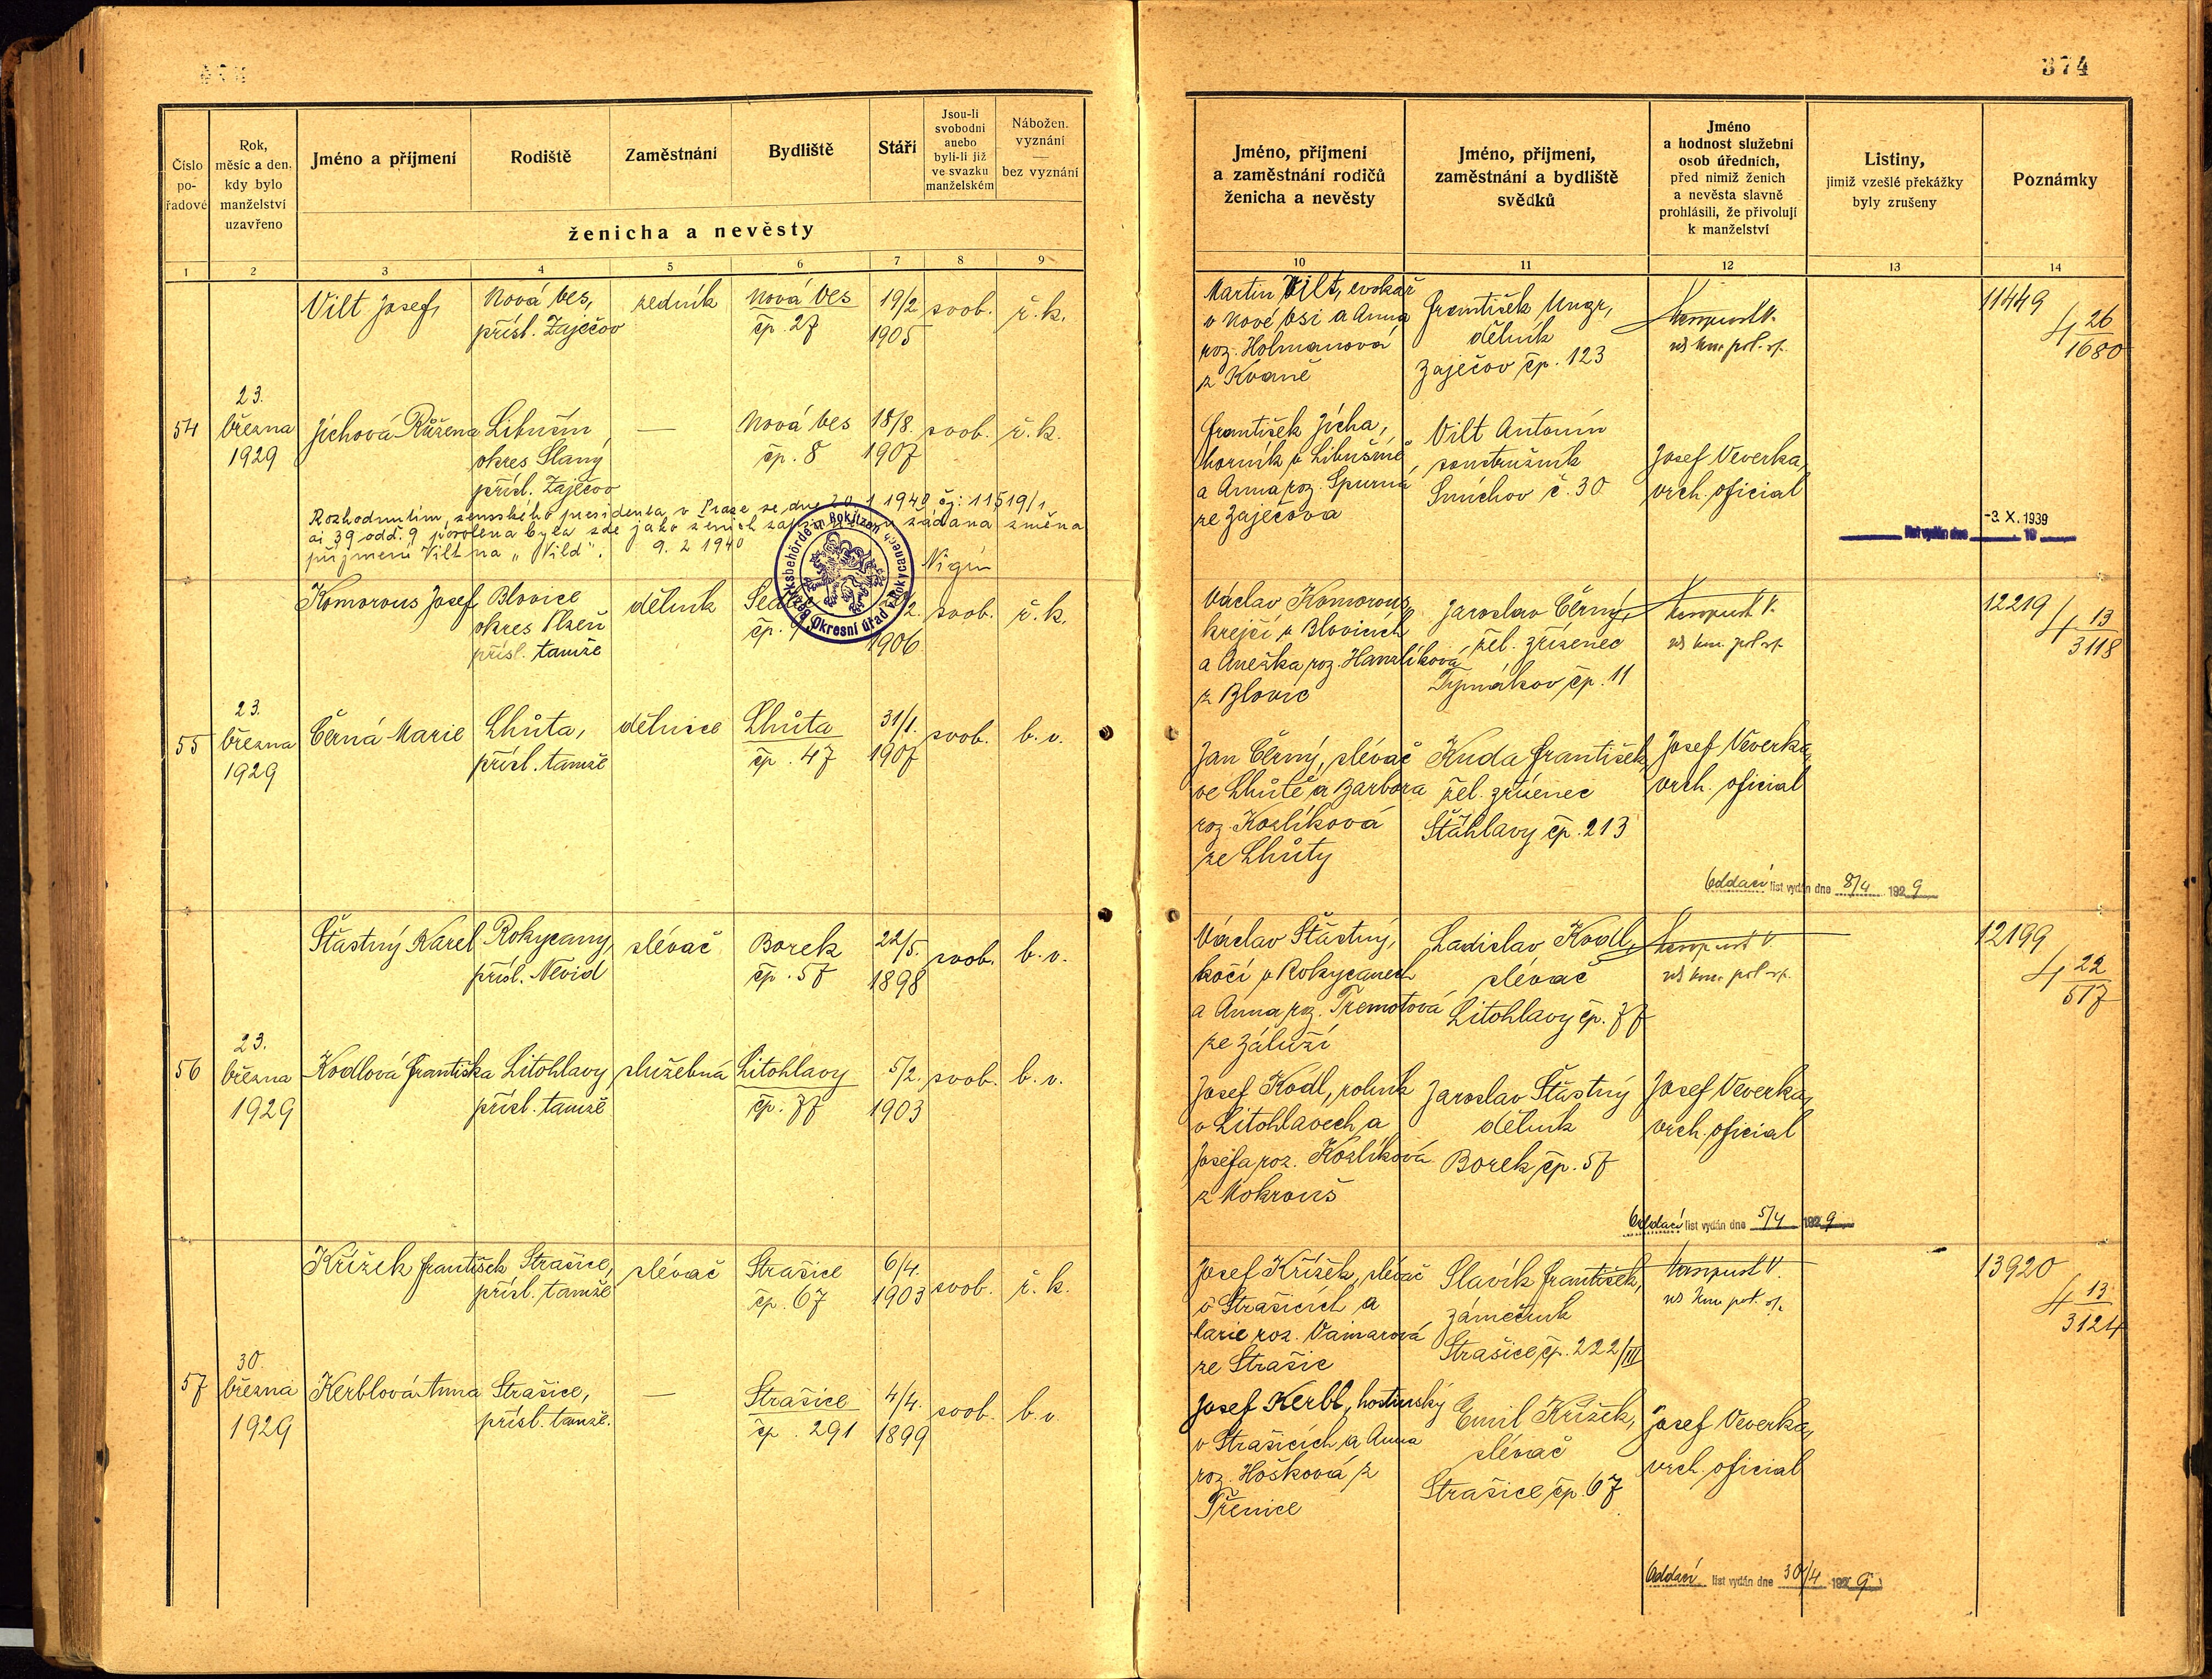 374
Číslo
po-
řadové
Rok,
měsíc a den,
kdy bylo
manželství
uzavřeno
Jméno a příjmení
Rodiště
Zaměstnání
Bydliště
Stáří
Jsou-li
svobodni
anebo
byli-li již
ve svazku
manželském
Nábožen.
vyznání
—
bez vyznání
ženicha a nevěsty
1 2 3 4 5 6 7 8 9
Vilt Josef
Nová Ves,
přísl. Zaječov
zedník
Nová Ves
čp. 27
19/2
1905
svob.
ř. k.
54
23.
března
1929
Jíchová Růžena
Libušín
okres Slaný
přísl. Zaječov
—
Nová Ves
čp. 8
18/8.
1907
svob.
ř. k.
Rozhodnutím zemského presidenta v Praze ze dne 20. 1 1940 čj: 11519/1
ai 39 odd. 9 povolena byla zde jako ženich žádaná změna
příjmení Vilt na „Vild". 9. 2 1940
Bezirksbehörde in Rokitzan
Okresní úřad v Rokycanech
Komorous Josef
Blovice
okres Plzeň
přísl. tamže
dělník
čp.
1906
svob.
ř. k.
55
23.
března
1929
Černá Marie
Lhůta,
přísl. tamže
dělnice
Lhůta
čp. 47
31/1.
1907
svob.
b. v.
Šťastný Karel
Rokycany
přísl. Nevid
slévač
Borek
čp. 57
22/5.
1898
svob.
b. v.
56
23.
března
1929
Kodlová Františka
Litohlavy
přísl. tamže
služebná
Litohlavy
čp. 77
5/2.
1903
svob.
b. v.
Křížek František
Strašice,
přísl. tamže
slévač
Strašice
čp. 67
6/4.
1903
svob.
ř. k.
57
30.
března
1929
Kerblová Anna
Strašice,
přísl. tamže.
—
Strašice
čp. 291
4/4.
1899
svob.
b. v.
Jméno, příjmení
a zaměstnání rodičů
ženicha a nevěsty
Jméno, příjmení,
zaměstnání a bydliště
svědků
Jméno
a hodnost služební
osob úředních,
před nimiž ženich
a nevěsta slavně
prohlásili, že přivolují
k manželství
Listiny,
jimiž vzešlé překážky
byly zrušeny
Poznámky
10 11 12 13 14
Martin Vilt, cvokař
v Nové Vsi a Anna
roz. Holmanová
z Kvaně
František Ungr,
dělník
Zaječov čp. 123
11449
4 26
1680
František Jícha,
horník v Libušíně
a Anna roz. Spurná
ze Zaječova
Vilt Antonín
soustružník
Smíchov č. 30
Josef Veverka,
vrch. oficial
list vydán dne -3. X. 1939
19
Václav Komorous
krejčí v Blovicích
a Anežka roz. Hanzlíková
z Blovic
Jaroslav Černý,
žel. zřízenec
Tymákov čp. 11
12219
4 13
3118
Jan Černý, slévač
ve Lhůtě a Barbora
roz. Kozlíková
ze Lhůty
Kuda František
žel. zřízenec
Šťáhlavy čp. 213
Josef Veverka,
vrch. oficial
Oddací list vydán dne 8/4 1929
Václav Šťastný,
kočí v Rokycanech
a Anna roz. Tremotová
ze Záluží
Ladislav Kodl,
slévač
Litohlavy čp. 77
12199
4 22
517
Josef Kodl, rolník
v Litohlavech a
Josefa roz. Kozlíková
z Mokrouš
Jaroslav Šťastný
dělník
Borek čp. 57
Josef Veverka,
vrch. oficial
Oddací list vydán dne 5/4 1929
Josef Křížek, slévač
v Strašicích a
Marie roz. Vaimarová
ze Strašic
Slavík František,
zámečník
Strašice čp. 222/III
13920
4 13
3124
Josef Kerbl, hostinský
v Strašicích a Anna
roz. Hošková z
Třenice
Emil Křížek,
slévač
Strašice čp. 67
Josef Veverka,
vrch. oficial
Oddací list vydán dne 30/4 1929